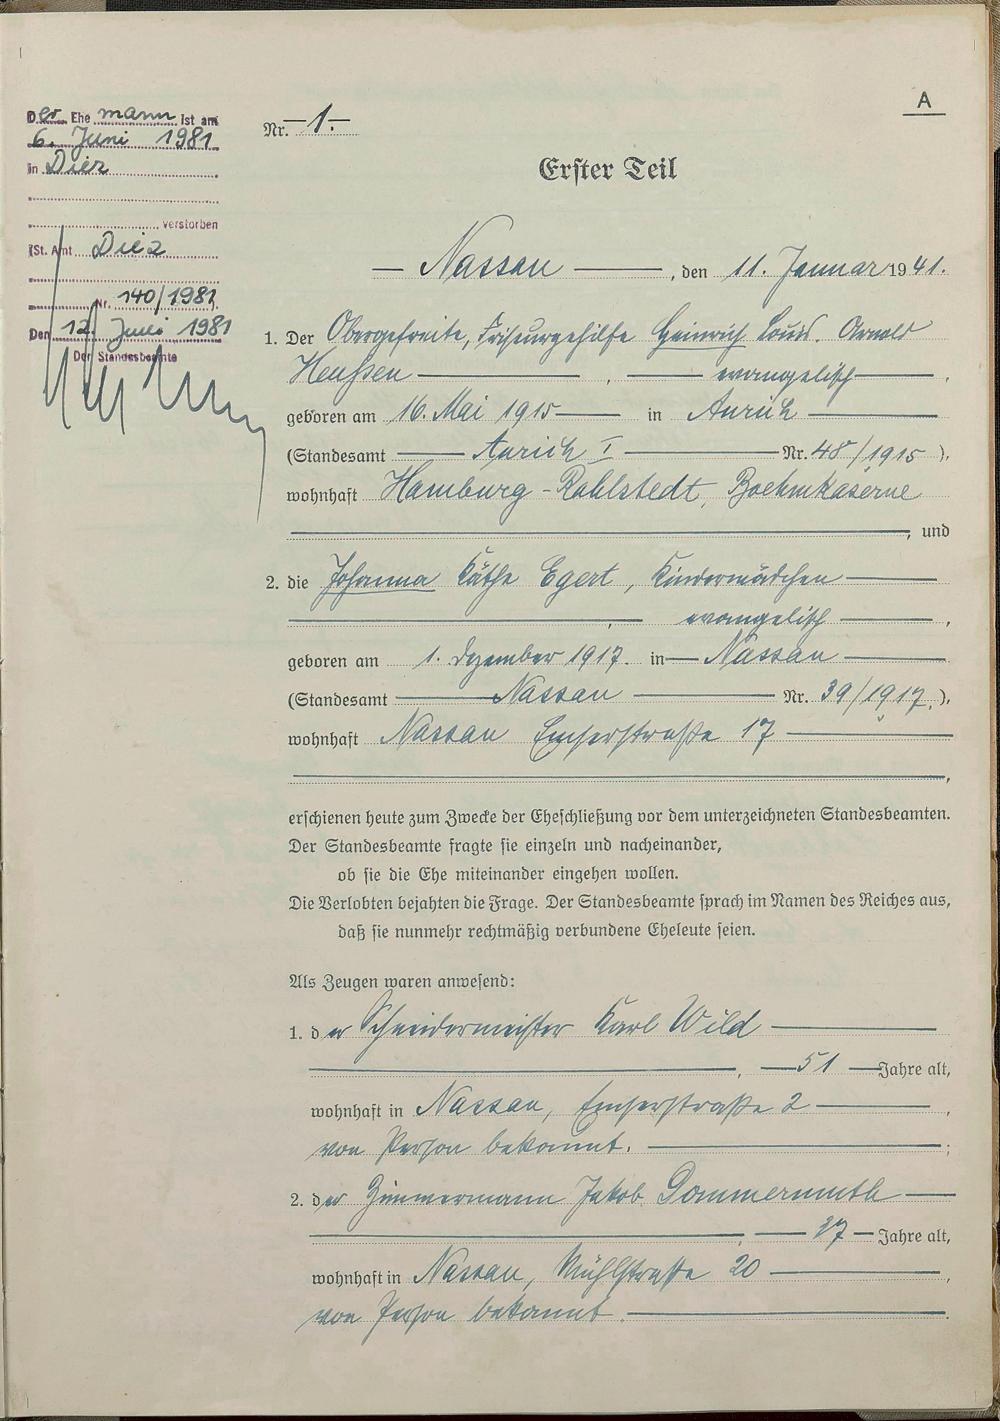 A
Der Ehemann ist am
6. Juni 1981
in Diez
verstorben
(St. Amt Diez
Nr. 140/1981).
Den 12. Juni 1981
Der Standesbeamte
Nr. 1.
Erster Teil
Nassau, den 11. Januar 1941.
1. Der Obergefreite, Friseurgehilfe Heinrich Louis Arnold
Heußen, evangelisch,
geboren am 16. Mai 1915 in Aurich
(Standesamt Aurich I Nr. 48/1915).
wohnhaft Hamburg-Rahlstedt, Boehmkaserne
, und
2. die Johanna Käthe Egert, Kindermädchen
, evangelisch,
geboren am 1. Dezember 1917. in Nassau
(Standesamt Nassau Nr. 39/1917.).
wohnhaft Nassau Emserstraße 17
,
erschienen heute zum Zwecke der Eheschließung vor dem unterzeichneten Standesbeamten.
Der Standesbeamte fragte sie einzeln und nacheinander,
ob sie die Ehe miteinander eingehen wollen.
Die Verlobten bejahten die Frage. Der Standesbeamte sprach im Namen des Reiches aus,
daß sie nunmehr rechtmäßig verbundene Eheleute seien.
Als Zeugen waren anwesend:
1. der Schneidermeister Karl Wild
, 51 Jahre alt,
wohnhaft in Nassau, Emserstraße 2,
von Person bekannt.;
2. der Zimmermann Jakob Dommermuth
, Jahre alt,
wohnhaft in Nassau, Mühlstraße 20,
von Person bekannt.